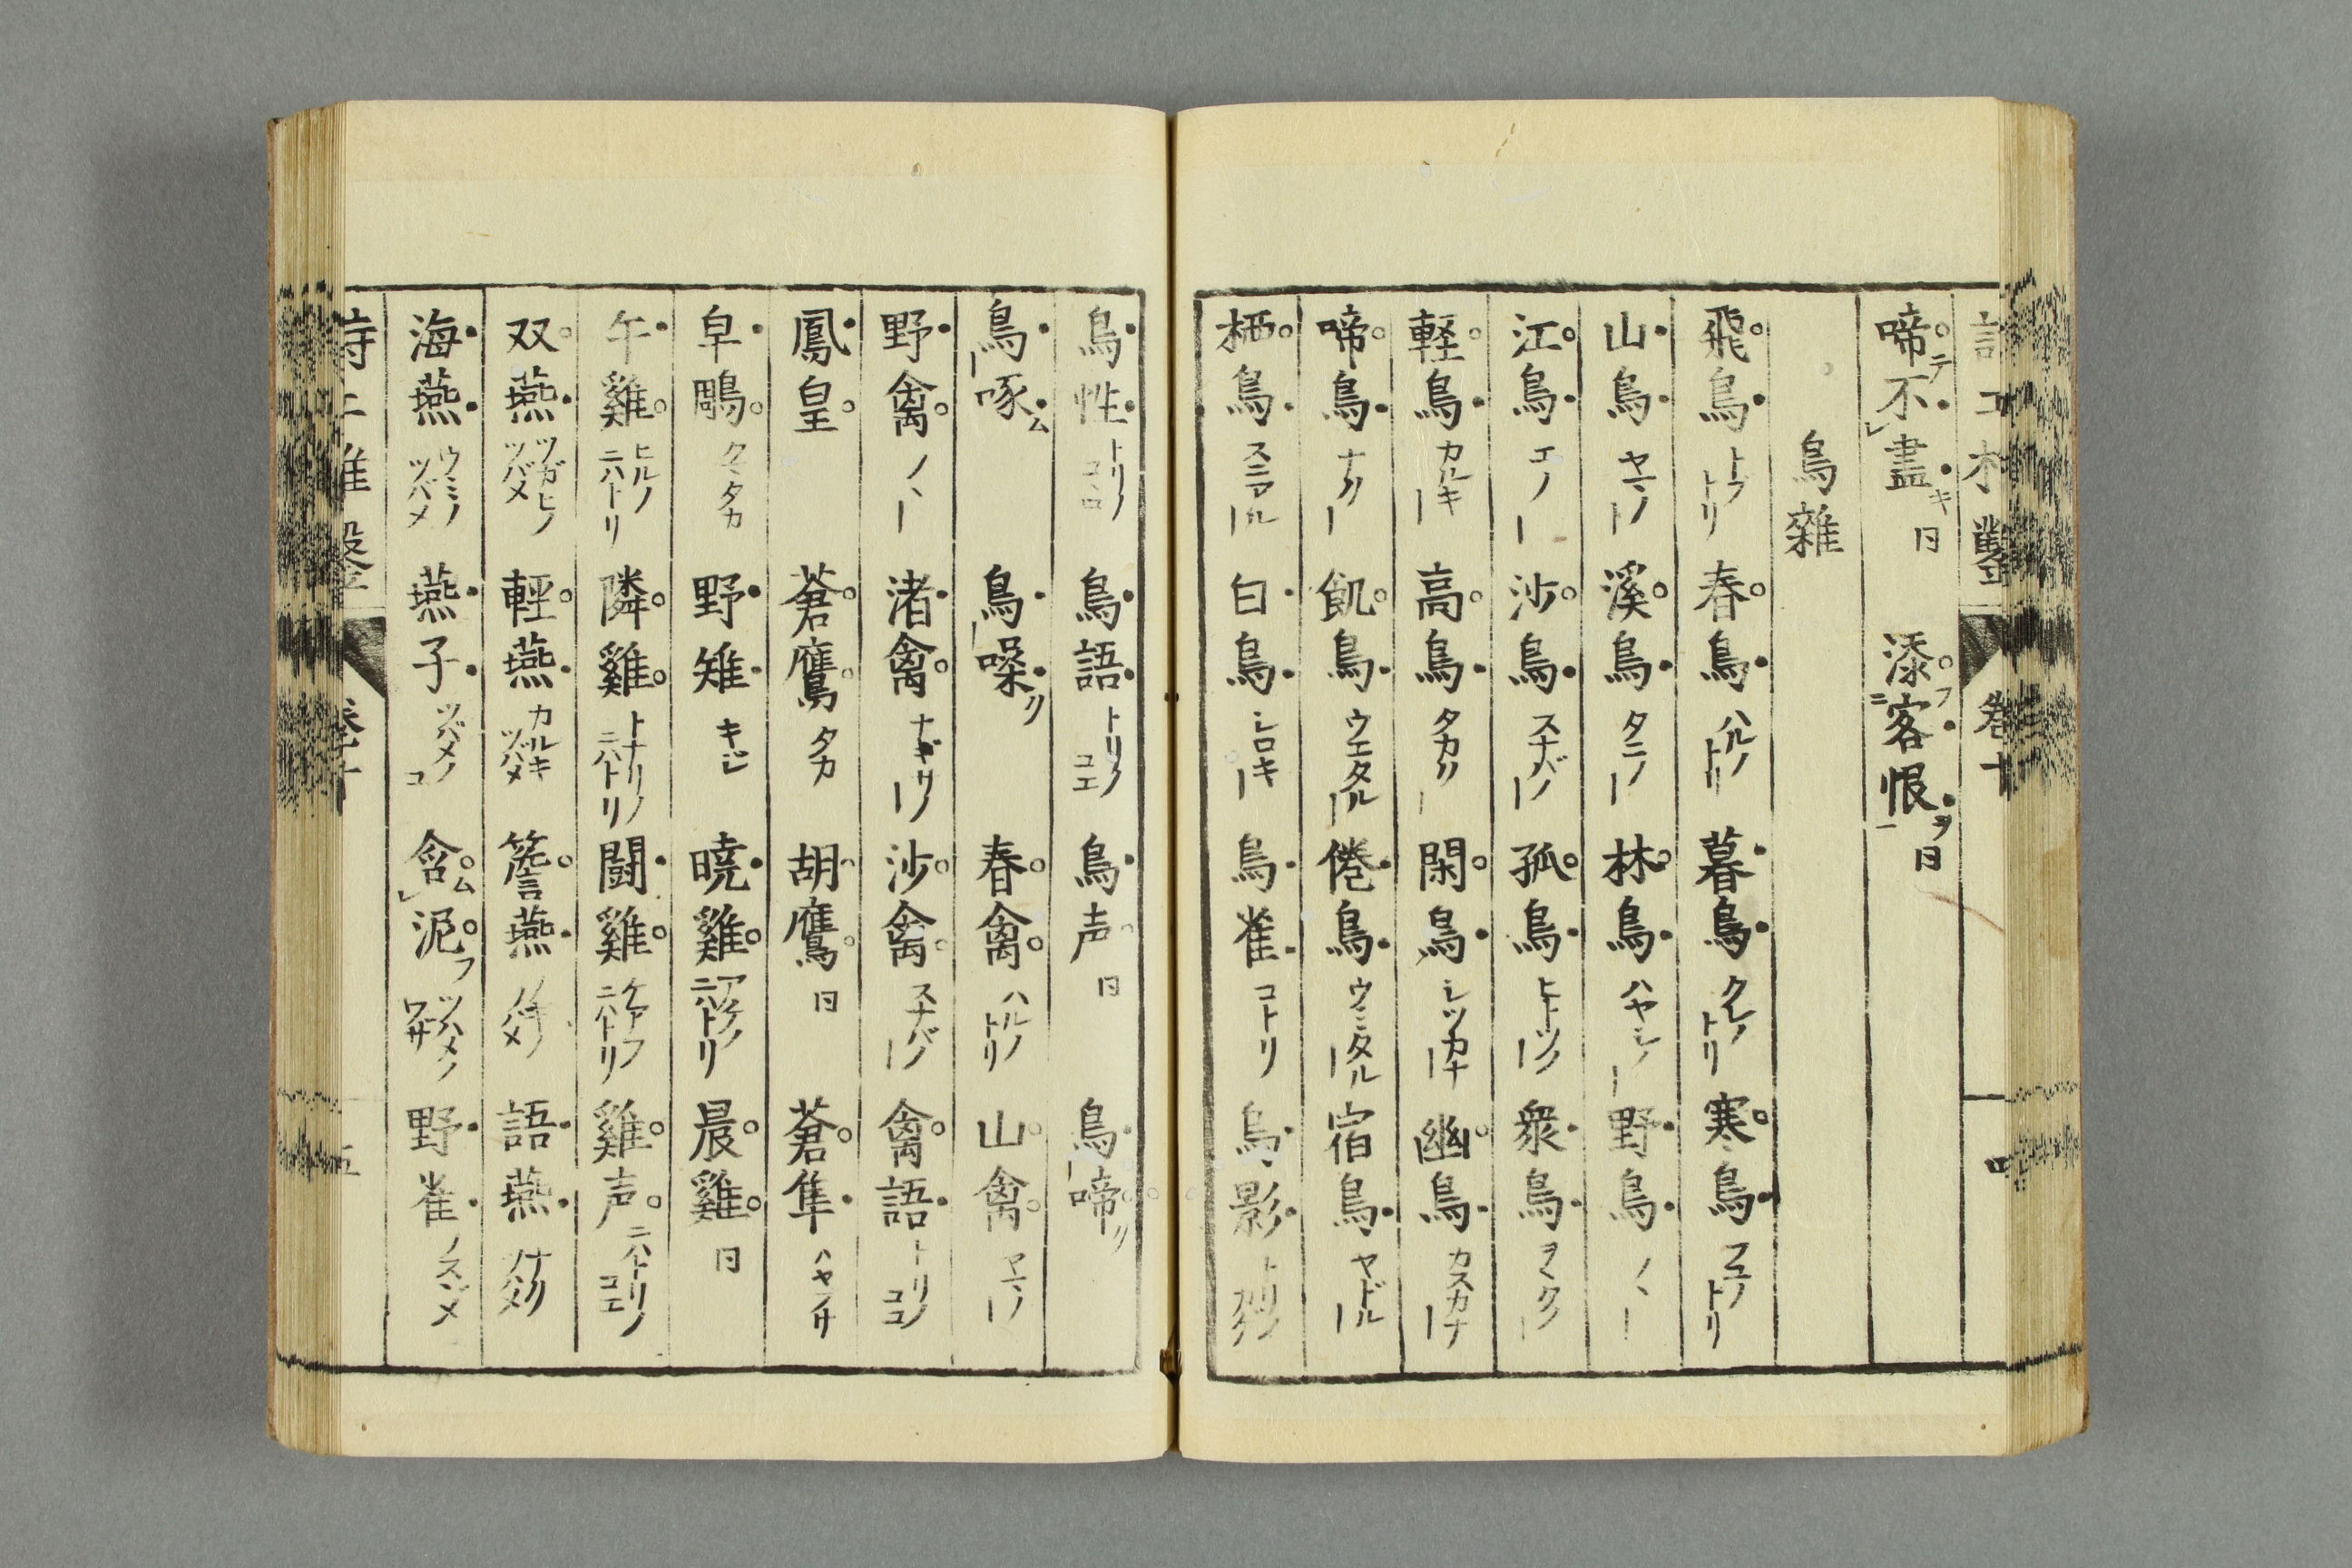 啼テ不レ盡キ 日 添フ二客恨ヲ一 日
鳥雜
飛鳥 トブトリ 春鳥 ハルノトリ 暮鳥 クレノトリ 寒鳥 フユノトリ
山鳥 ヤマノ｜ 溪鳥 タニノ｜ 林鳥 ハヤシノ｜ 野鳥 ノヽ｜
江鳥 エノ｜ 沙鳥 スナバノ｜ 孤鳥 ヒトツノ｜ 衆鳥 ヲヽクノ｜
軽鳥 カルキ｜ 高鳥 タカク｜ 閑鳥 シツカナ｜ 幽鳥 カスカナ｜
啼鳥 ナク｜ 飢鳥 ウエタル｜ 倦鳥 ウミタル｜ 宿鳥 ヤドル｜
栖鳥 スニアル｜ 白鳥 シロキ｜ 鳥雀 コトリ 鳥影 トリノ
鳥性 トリノコヽロ 鳥語 トリノコエ 鳥声 日 鳥啼ク
鳥啄ム 鳥噪ク 春禽 ハルノトリ 山禽 ヤマノ｜
野禽 ノヽ｜ 渚禽 ナギサノ｜ 沙禽 スナバノ｜ 禽語 トリノコヱ
鳳皇 蒼鷹 タカ 胡鷹 日 蒼隼 ハヤブサ
皁鵰 クマタカ 野雉 キジ 暁雞 アケノニハトリ 晨雞 日
午雞 ヒルノニハトリ 隣雞 トナリノニハトリ 闘雞 ケアフニハトリ 雞声 ニハトリノコエ
双燕 ツガヒノツバメ 輕燕 カルキツバメ 簷燕 ノキノツバメ 語燕 ナクツバメ
海燕 ウミノツバメ 燕子 ツバメノコ 含ムレ泥フ ツバメノワザ 野雀 ノスヾメ